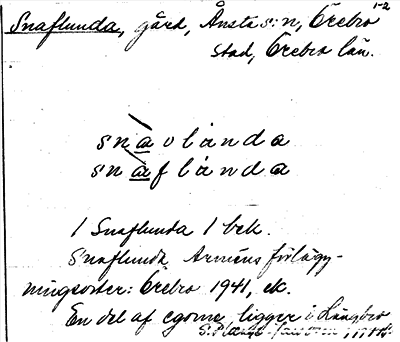 Snaflunda, gård, Ånsta s:n, Örebro
1-2
stad, Örebro län.
snavlánda
snafl​ánda
1 Snaflunda 1 bek.
Snaflunda Arméns förlägg-
ningsorter: Örebro 1941, ek.
En del af egorne ligger i Längbro